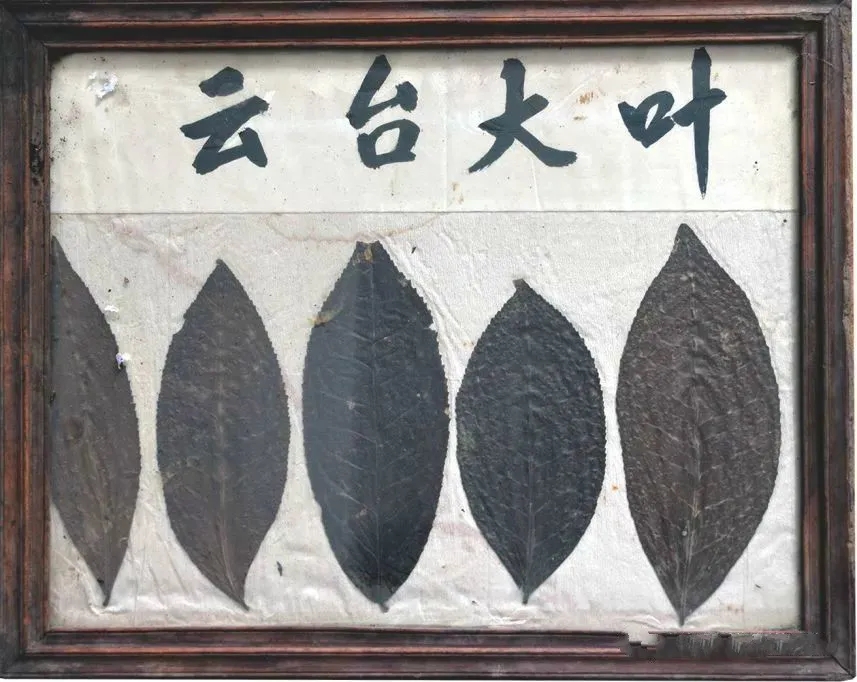 云台大叶